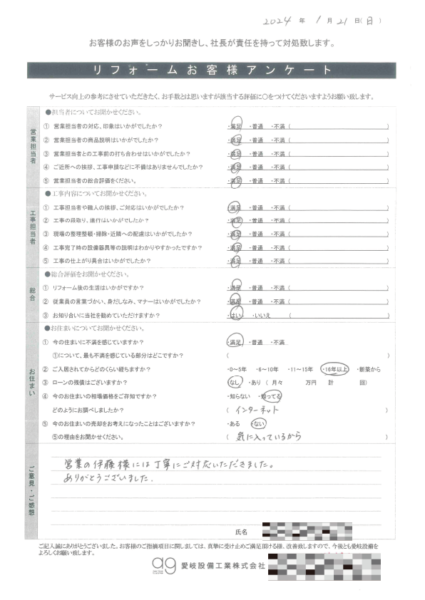 2024年 1月 21日(日)
お客様のお声をしっかりお聞きし、社長が責任を持って対処致します。
リフォームお客様アンケート
サービス向上の参考にさせていただきたく、お手数とは思いますが該当する評価に○をつけてくださいますようお願い致します。
営業担当者
●担当者についてお聞かせください。
① 営業担当者の対応、印象はいかがでしたか? ・満足 ・普通 ・不満 (
② 営業担当者の商品説明はいかがでしたか? ・満足 ・普通 ・不満 (
③ 営業担当者との工事前の打ち合わせはいかがでしたか? ・満足 ・普通 ・不満 (
④ ご近所への挨拶、工事申請などに不備はありませんでしたか? ・満足 ・普通 ・不満 (
⑤ 営業担当者の総合評価をください。 ・満足 ・普通 ・不満 (
工事担当者
●工事内容についてお聞かせください。
① 工事担当者や職人の挨拶、ご対応はいかがでしたか? ・満足 ・普通 ・不満 (
② 工事の段取り、進行はいかがでしたか? ・満足 ・普通 ・不満 (
③ 現場の整理整頓・掃除・近隣への配慮はいかがでしたか? ・満足 ・普通 ・不満 (
④ 工事完了時の設備器具等の説明はわかりやすかったですか? ・満足 ・普通 ・不満 (
⑤ 工事の仕上がり具合はいかがでしたか? ・満足 ・普通 ・不満 (
総合
●総合評価をお聞かせください。
① リフォーム後の生活はいかがですか? ・満足 ・普通 ・不満 (
② 従業員の言葉づかい、身だしなみ、マナーはいかがでしたか? ・満足 ・普通 ・不満 (
③ お知り合いに当社を勧めていただけますか? ・はい ・いいえ (
お住まい
●お住まいについてお聞かせください。
① 今の住まいに不満を感じていますか? ・満足 ・普通 ・不満
①について、最も不満を感じている部分はどこですか? ( )
② ご入居されてからどのくらい経ちますか? ・0〜5年 ・6〜10年 ・11〜15年 ・16年以上 ・新築から
③ ローンの残債はございますか? なし ・あり ( 月々 万円 計 回)
④ 今のお住まいの相場価格をご存知ですか? ・知らない ・知ってる
どのようにお調べしましたか? ( インターネット )
⑤ 今のお住まいの売却をお考えになったことはございますか? ・ある ・ない
⑤の理由をお聞かせください。 ( 気に入っているから )
ご意見・ご感想
営業の伊藤様には丁寧にご対応いただきました。
ありがとうございました.
氏名
ご記入誠にありがとうございました。お客様のご指摘項目に関しては、真摯に受け止めご満足頂ける様、改善致しますので、今後とも愛岐設備をよろしくお願い致します。
ag 愛岐設備工業株式会社